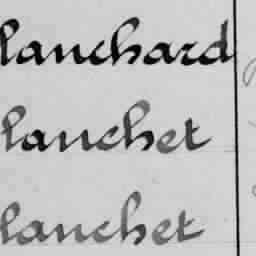 lanchard
lanchet
lanchet